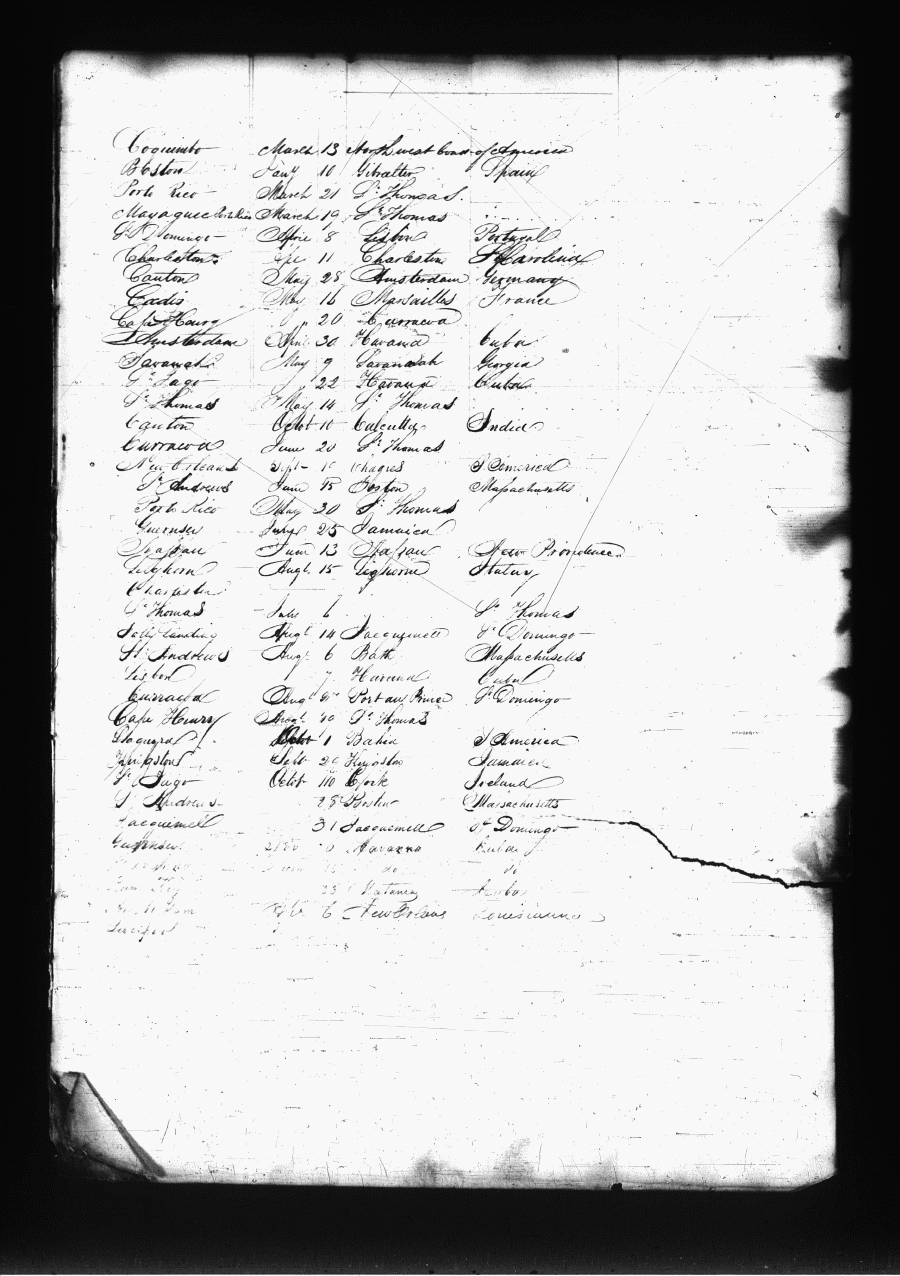 Coquimbo March 13 North west Coast of America
Boston Jany 10 Gibralter Spain
Porto Rico March 21 St Thomas
Mayaguez March 19 St Thomas
St Domingo April 8 Lisbon Portugal
Charleston 11 Charleston S Carolina
Canton May 28 Amsterdam Germany
Cadis May 16 Marsailles France
Cape Henry " 20 Curracoa
Amsterdam April 30 Havana Cuba
Savannah May 9 Savannah Georgia
St Iago " 22 Havana Cuba
St Thomas May 14 St Thomas
Canton Octob 10 Calcutta India
Curracoa June 20 St Thomas
New Orleans Sept 10 Chagres S America
St Andrews June Boston Massachusetts
Porto Rico May 20 St Thomas
Guernsey 25 Jamaica
Nassau June 13 Nassau New Providence
Leghorn Augt 15 Leghorn Italey
Charleston
St Thomas 6 St Thomas
Augt 14 Jacquemell St Domingo
St Andrews Augt 6 Bath Massachusetts
Lisbon 7 Havana Cuba
Curracoa Aug Port au Prince St Domingo
Cape Henry Augt St Thomas
Laguyra Octob 1 Bahia S America
Kingston Sept Kingston Jamaica
St Iago Octob Cork Ireland
St Andrews 28 Boston Massachusetts
Jacquemell 31 Jacquemell St Domingo
Guernsey Havanna Cuba
do do
23
6 New Orleans Louisianna
Liverpool